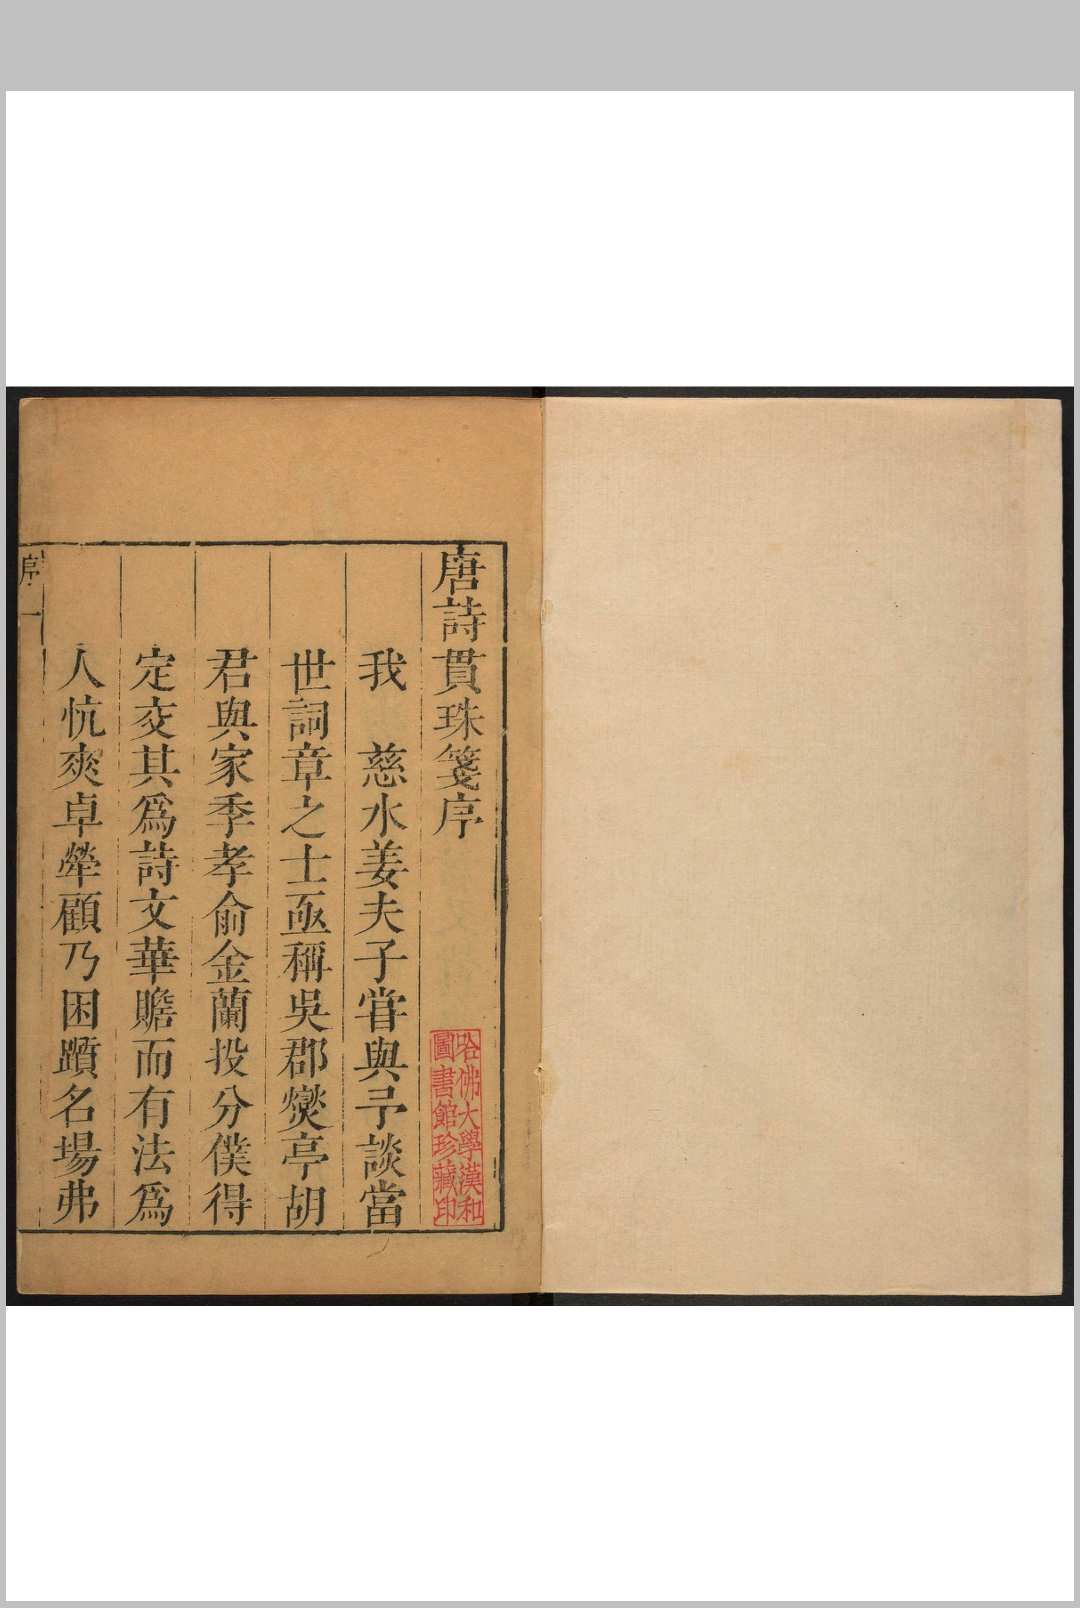 唐詩貫珠箋序
我　慈水姜夫子甞與予談當
世詞章之士亟稱吳郡燮亭胡
君與家季孝俞金蘭投分僕得
定交其爲詩文華贍而有法爲
人忼爽卓犖顧乃困躓名場弗
序
一
哈佛大學漢和
圖書館珍藏印